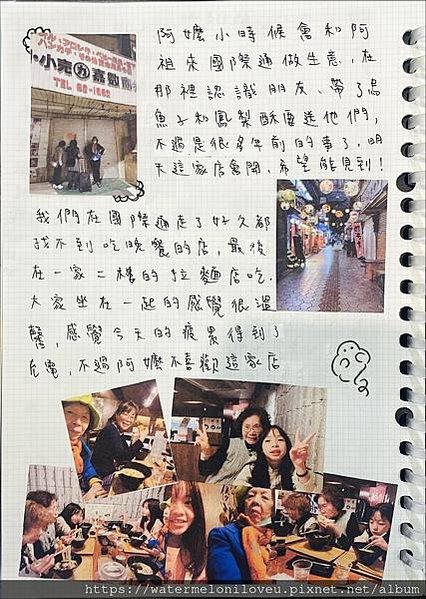 小売 カ 嘉数商
TEL
阿嬤小時候會和阿
祖來國際通做生意,在
那裡認識朋友、帶了烏
魚子和鳳梨酥要送他們,
不過是很多年前的事了,明
天這家店會開,希望能見到!
我們在國際通走了好久都
找不到吃晚餐的店,最後
在一家二樓的拉麵店吃.
大家坐在一起的感覺很溫
馨,感覺今天的疲累得到了
充電,不過阿嬤不喜歡這家店
https://watermeloniloveu.pixnet.net/album